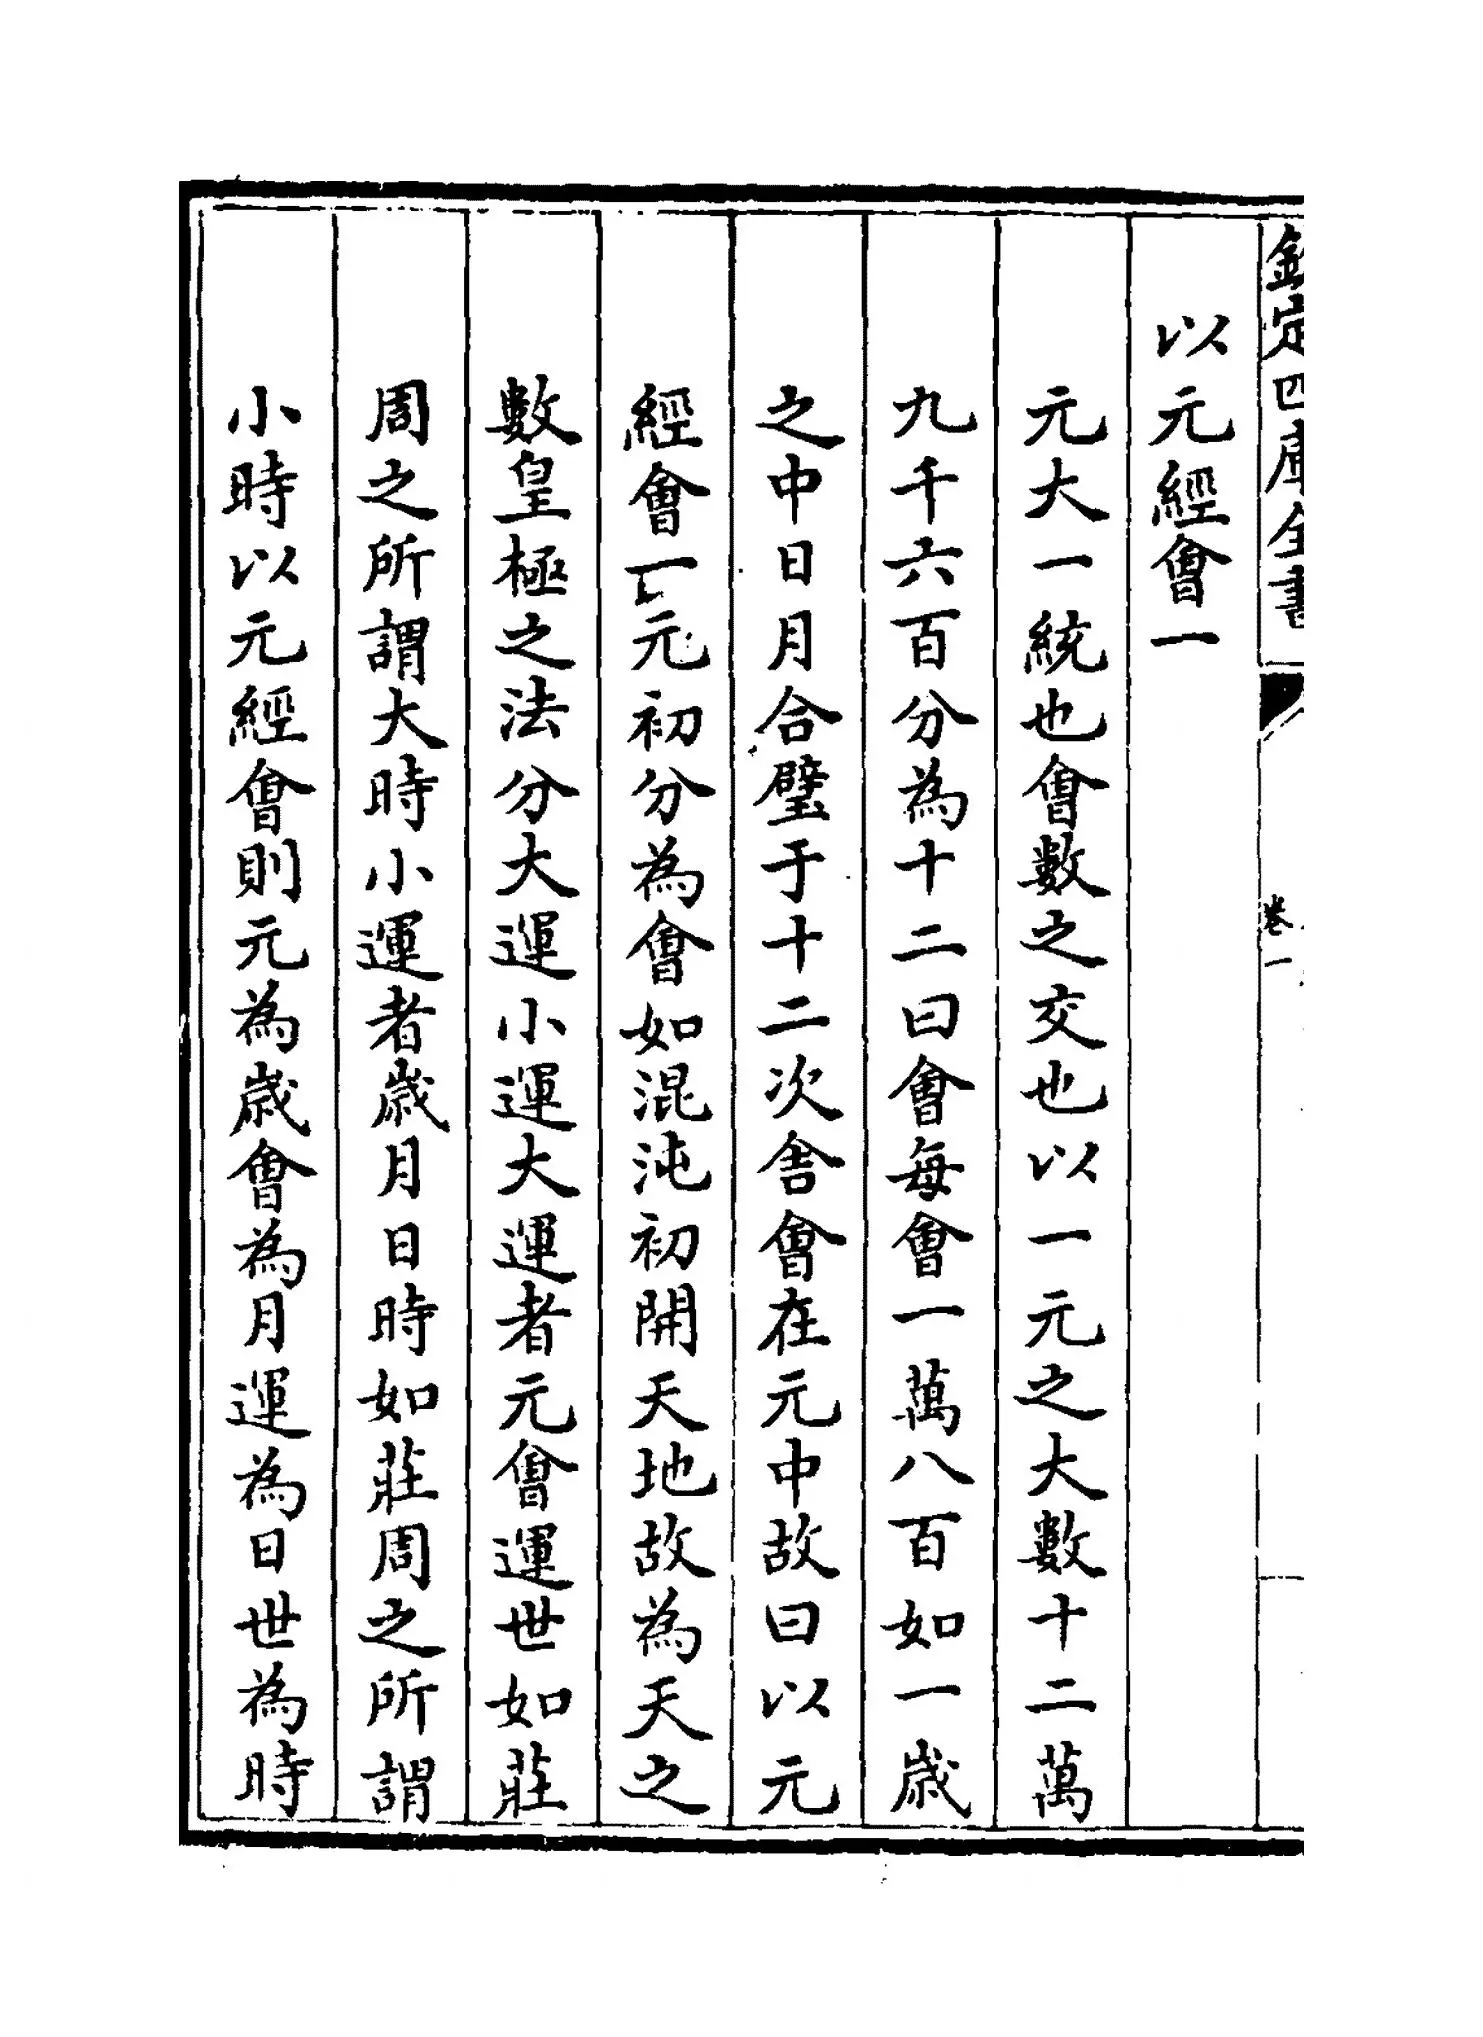 欽定四庫全書
卷一
以元經會一
元大一統也會數之交也以一元之大數十二萬
九千六百分為十二曰會每會一萬八百如一歲
之中日月合璧于十二次舍會在元中故曰以元
經會一元初分為會如混沌初開天地故為天之
數皇極之法分大運小運大運者元會運世如莊
周之所謂大時小運者歲月日時如莊周之所謂
小時以元經會則元為歲會為月運為日世為時